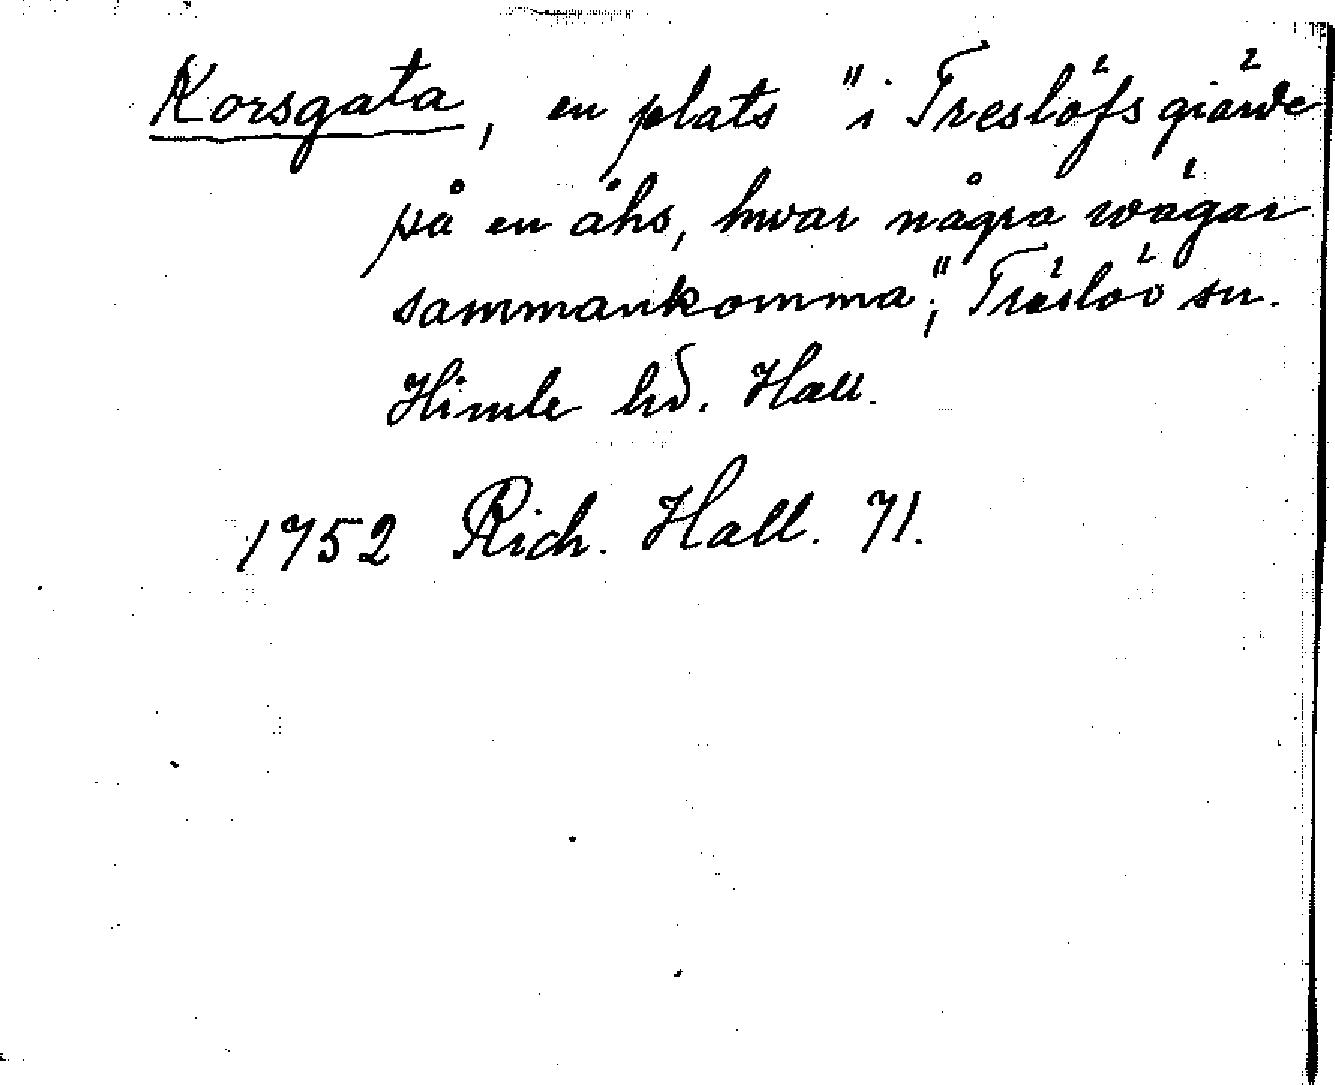 Korsgata, en plats "i Treslöfs giärde
på en åhs, hwar några wägar
sammankomma", Träslöv sn.
Himle hd. Hall.
1752 Rich. Hall. 71.